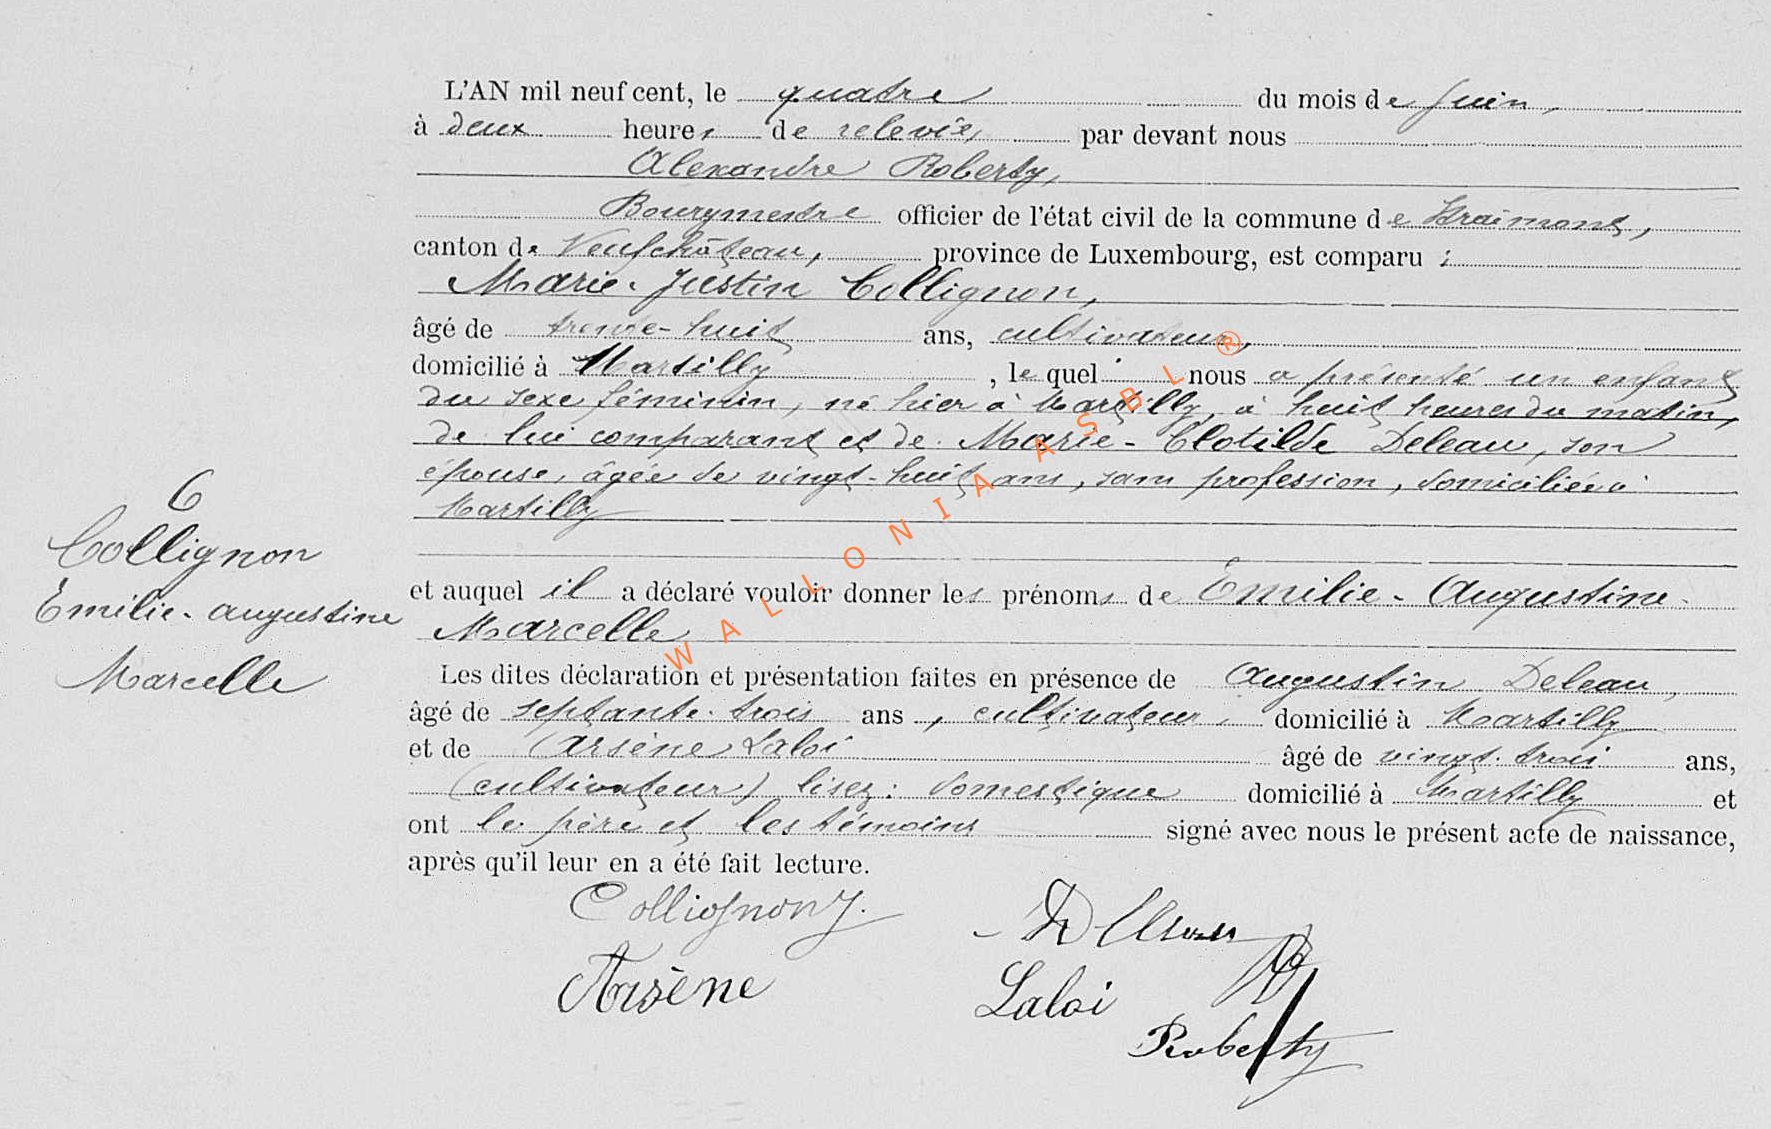 L'AN mil neuf cent, le quatre du mois de juin,
à deux heures de relevée, par devant nous
Alexandre Roberty,
Bourgmestre officier de l'état civil de la commune de Straimont,
canton de Neufchâteau, province de Luxembourg, est comparu :
Marie-Justin Collignon,
âgé de trente-huit ans, cultivateur,
domicilié à Martilly , le quel nous a présenté un enfant
du sexe féminin, né hier à Martilly, à huit heures du matin,
de lui comparant et de Marie-Clotilde Deleau, son
épouse, âgée de vingt-huit ans, sans profession, domiciliée à
Martilly
6
Collignon
Emilie-Augustine
Marcelle
et auquel il a déclaré vouloir donner les prénoms de Emilie-Augustine-
Marcelle
Les dites déclaration et présentation faites en présence de Augustin Deleau,
âgé de septante-trois ans, cultivateur, domicilié à Martilly
et de Arsène Laloi âgé de vingt-trois ans,
(cultivateur) lisez : domestique domicilié à Martilly et
ont le père et les témoins signé avec nous le présent acte de naissance,
après qu'il leur en a été fait lecture.
Collignon J.
Arsène Laloi
Roberty
WALLONIA ASBL ®